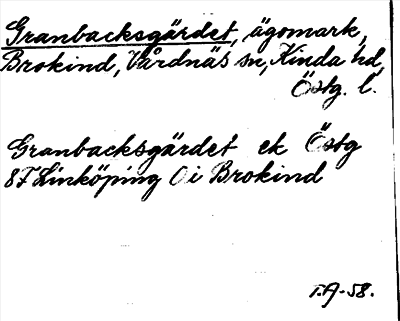 Granbacksgärdet, ägomark,
Brokind, Vårdnäs sn, Kinda hd,
Östg. l.
Granbacksgärdet ek Östg
8F Linköping 0 i Brokind
T.A-58.